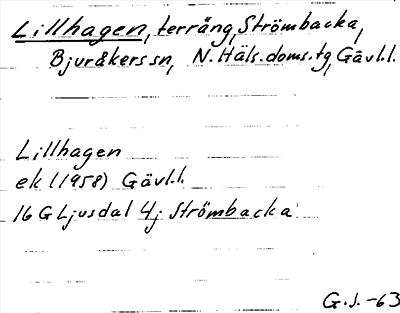 Lillhagen, terräng, Strömbacka,
Bjuråkers sn, N. Häls. doms.tg, Gävl.l.
Lillhagen
ek (1958) Gävl.l.
16 G Ljusdal 4j Strömbacka
G.J. -63